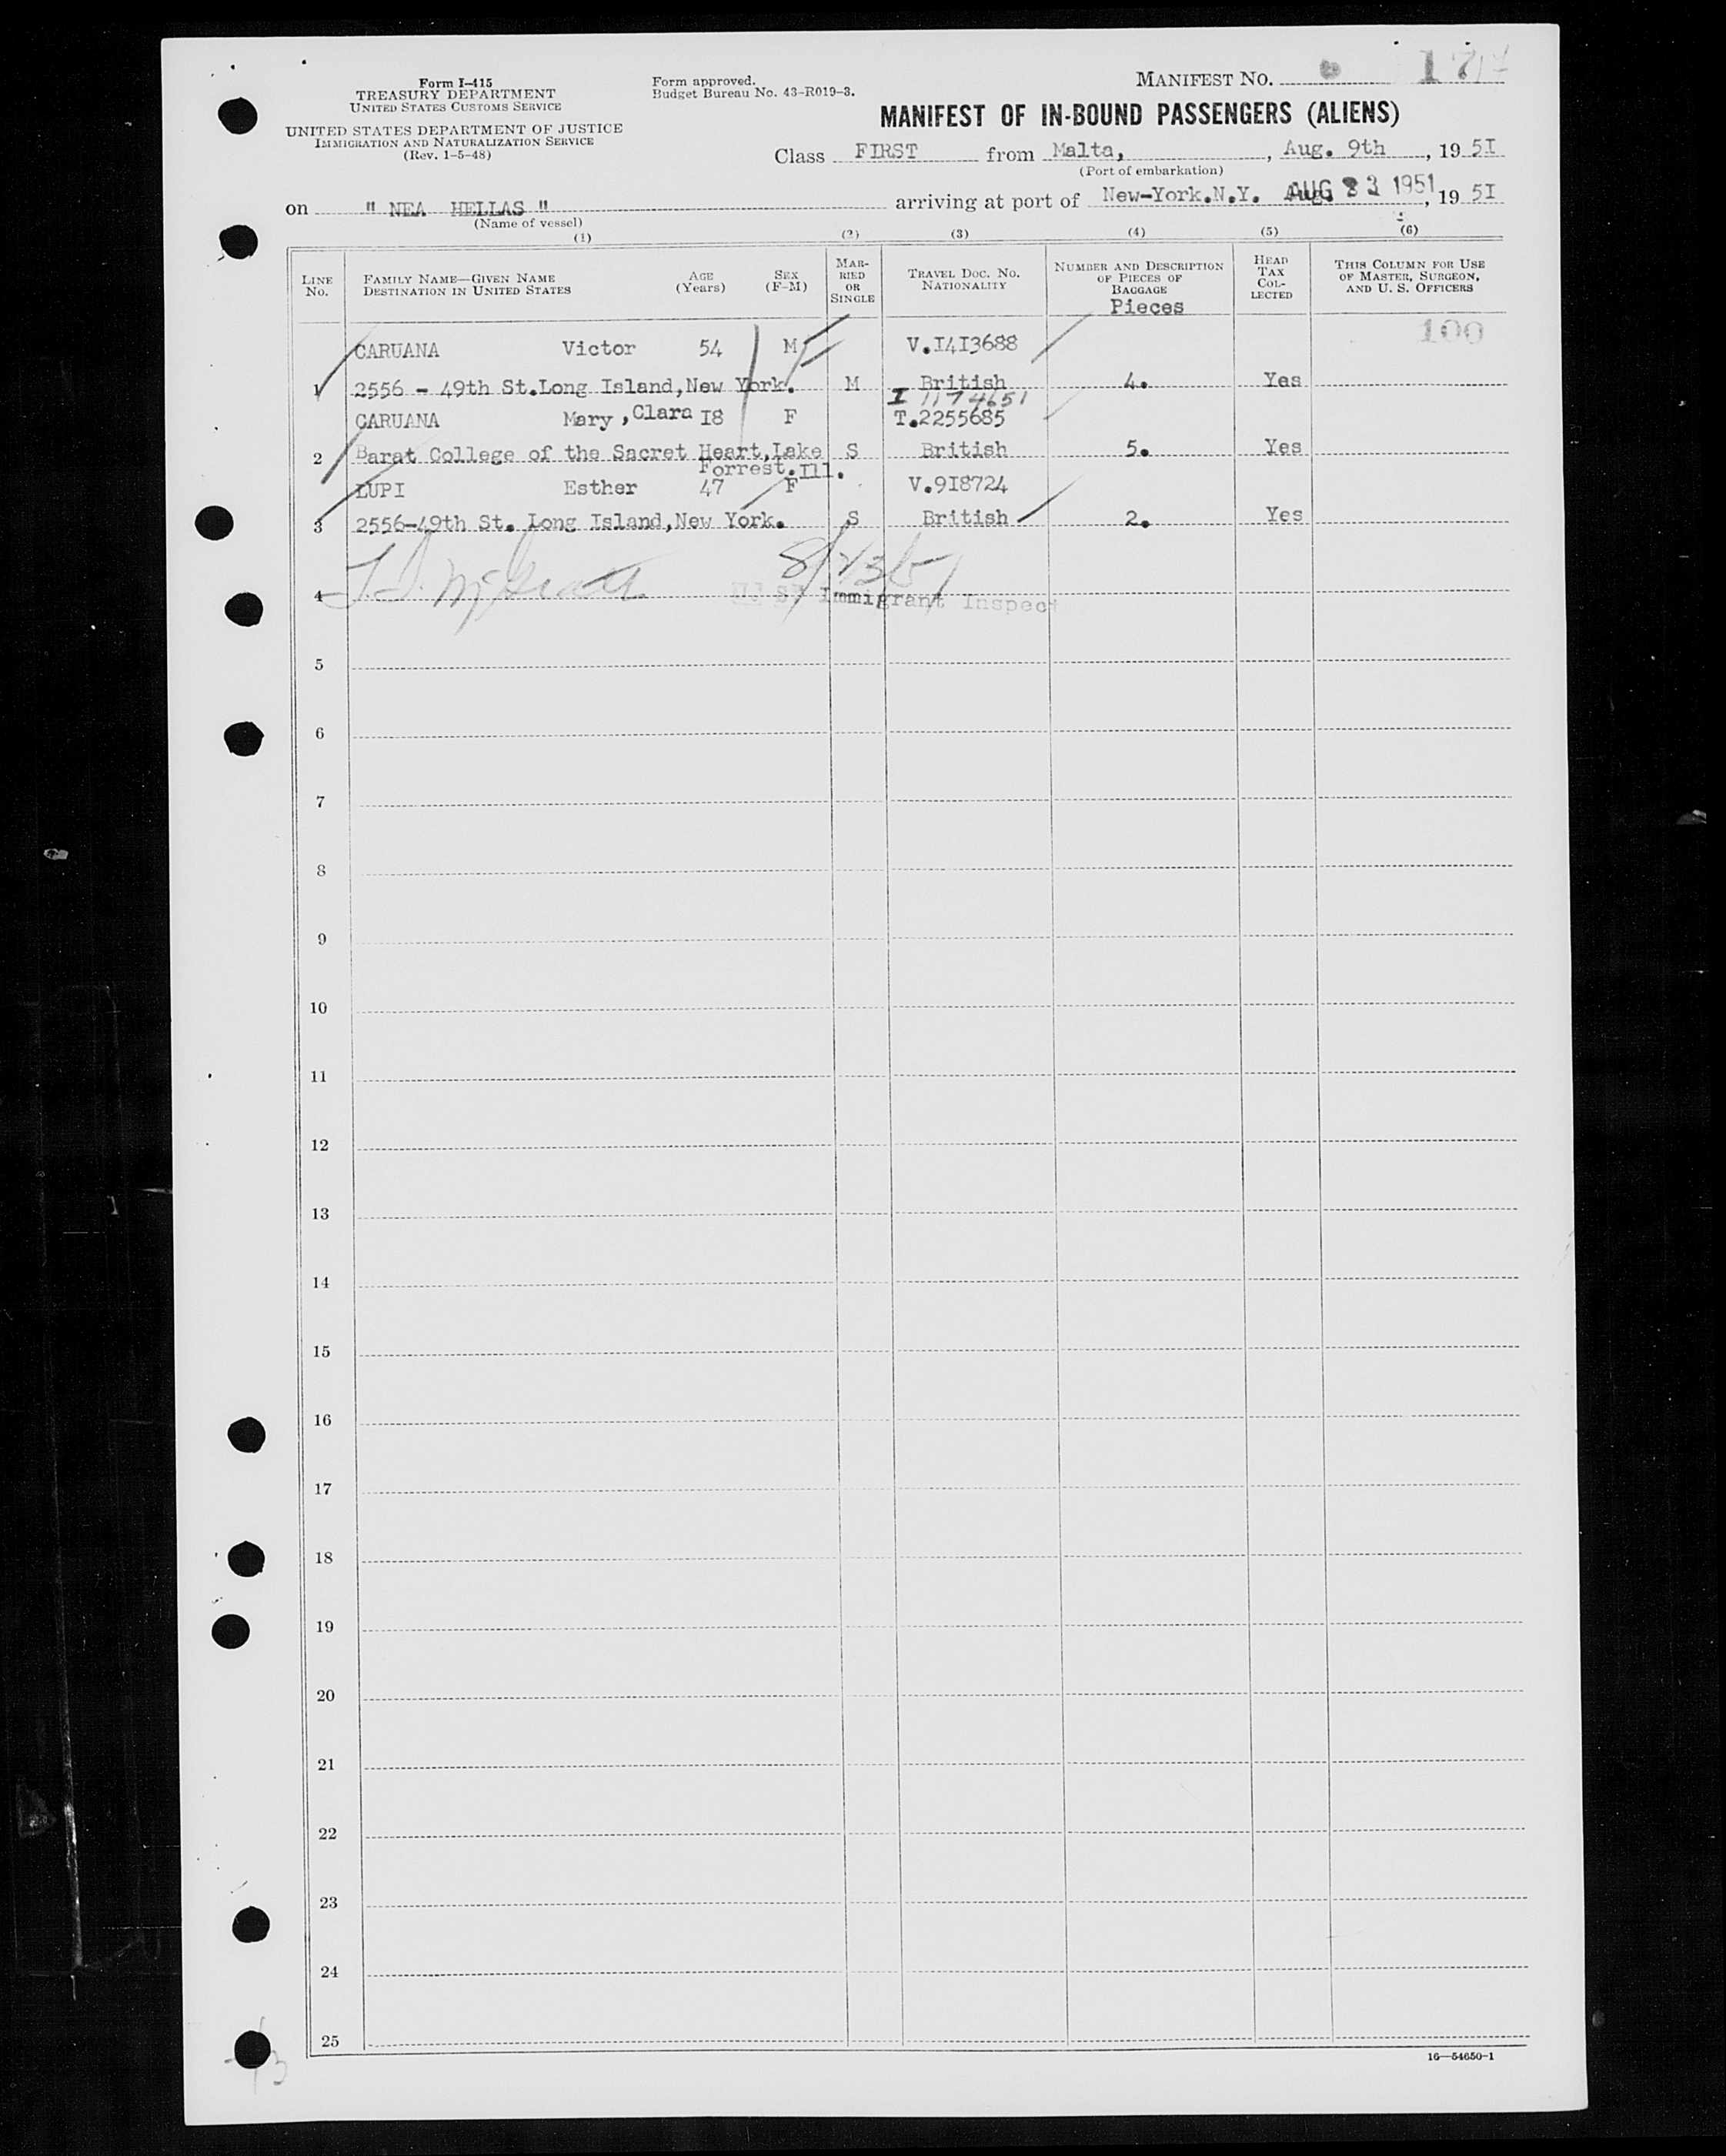 Form I-415
TREASURY DEPARTMENT
UNITED STATES CUSTOMS SERVICE
UNITED STATES DEPARTMENT OF JUSTICE
IMMIGRATION AND NATURALIZATION SERVICE
(Rev. 1-5-48)
Form approved.
Budget Bureau No. 43-R019-3.
MANIFEST NO. 17
MANIFEST OF IN-BOUND PASSENGERS (ALIENS)
Class FIRST from Malta, , Aug. 9th , 19 5I
(Port of embarkation)
on " NEA HELLAS " arriving at port of New-York.N.Y. AUG 23 1951 , 19 5I
(Name of vessel)
(1) (2) (3) (4) (5) (6)
LINE No. FAMILY NAME—GIVEN NAME DESTINATION IN UNITED STATES AGE (Years) SEX (F-M) MARRIED OR SINGLE TRAVEL DOC. NO. NATIONALITY NUMBER AND DESCRIPTION OF PIECES OF BAGGAGE HEAD TAX COLLECTED THIS COLUMN FOR USE OF MASTER, SURGEON, AND U. S. OFFICERS
Pieces
100
CARUANA Victor 54 M V.I4I3688
1 2556 - 49th St.Long Island,New York. M British 4. Yes
I 1174651
CARUANA Mary ,Clara I8 F T.2255685
2 Barat College of the Sacret Heart,Lake S British 5. Yes
Forrest.Ill.
LUPI Esther 47 F V.9I8724
3 2556-49th St. Long Island,New York. S British 2. Yes
8/23/51
4 Immigrant Inspect
5
6
7
8
9
10
11
12
13
14
15
16
17
18
19
20
21
22
23
24
25
16—54650-1